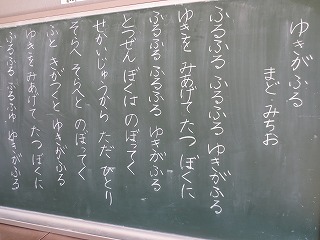 ゆきがふる
まど・みちお
ふるふる ふるふる ゆきがふる
ゆきを みあげて たつ ぼくに
ふるふる ふるふる ゆきがふる
とつぜん ぼくは のぼってく
せかいじゅうから ただ ひとり
そらへ そらへと のぼってく
ふと きがつくと ゆきがふる
ゆきを みあげて たつ ぼくに
ふるふる ふるふる ゆきがふる